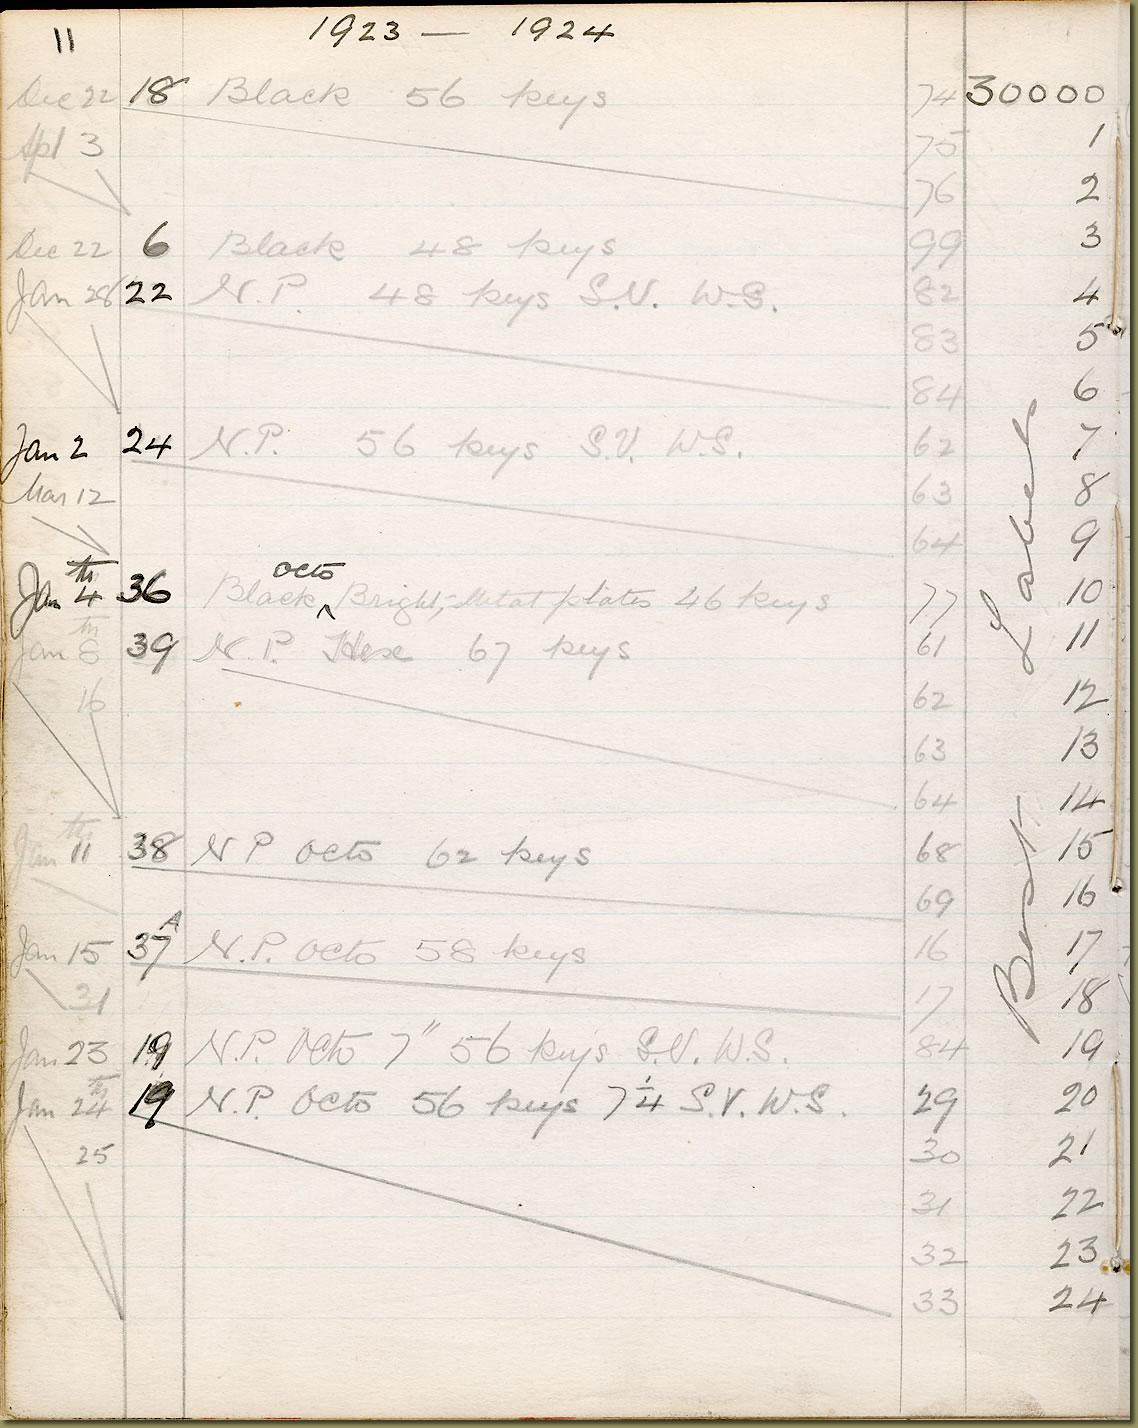 11 1923 — 1924
Dec 22 18 Black 56 keys 74 30000
Apl 3 75 1
76 2
Dec 22 6 Black 48 keys 99 3
Jan 28 22 N.P. 48 keys S.V. W.S. 82 4
83 5
84 6
Jan 2 24 N.P. 56 keys S.V. W.S. 62 7
Mar 12 63 8
64 9
Jan 4th 36 Black octo Bright, Metal plates 46 keys 77 10
Jan 8th 39 N.P. Hex 67 keys 61 11
16 62 12
63 13
64 14
Jan 11th 38 N P Octo 62 keys 68 15
69 16
Jan 15 37A N.P. Octo 58 keys 16 17
31 17 18
Jan 23 19 N.P. Octo 7" 56 keys S.V. W.S. 84 19
Jan 24th 19 N.P. Octo 56 keys 7 1/4 S.V. W.S. 29 20
25 30 21
31 22
32 23
33 24
Best Label